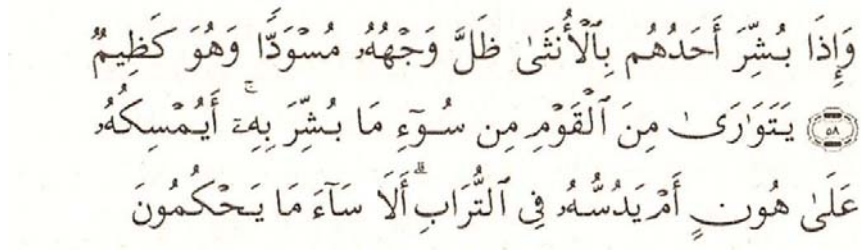 وَإِذَا بُشِّرَ أَحَدُهُم بِٱلْأُنثَىٰ ظَلَّ وَجْهُهُۥ مُسْوَدًّا وَهُوَ كَظِيمٌ
۝٥٨ يَتَوَٰرَىٰ مِنَ ٱلْقَوْمِ مِن سُوٓءِ مَا بُشِّرَ بِهِۦٓ ۚ أَيُمْسِكُهُۥ
عَلَىٰ هُونٍ أَمْ يَدُسُّهُۥ فِى ٱلتُّرَابِ ۗ أَلَا سَآءَ مَا يَحْكُمُونَ